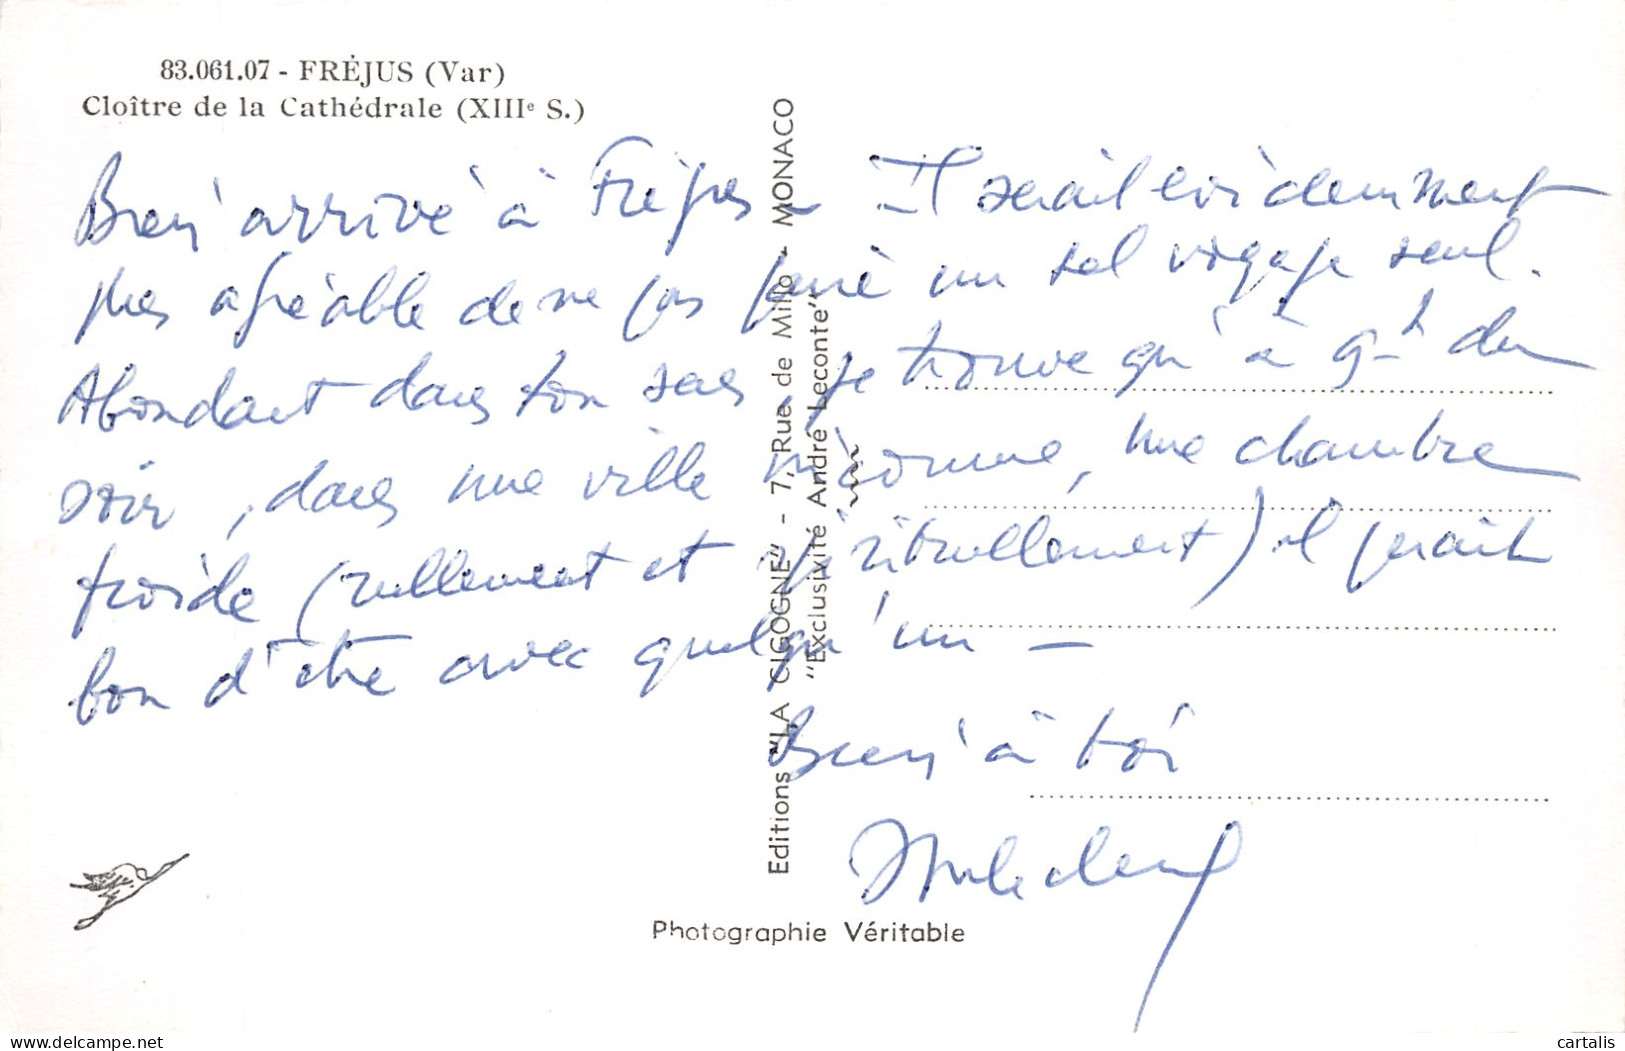 83.061.07 - FRÉJUS (Var)
Cloître de la Cathédrale (XIIIe S.)
Bien arrivé à Fréjus – Il serait évidemment
plus agréable de ne pas faire un tel voyage seul.
Abondant dans ton sens je trouve qu'à 9h du
soir, dans une ville inconnue, une chambre
froide (réellement et spirituellement) il ferait
bon d'être avec quelqu'un –
Bien à toi
Editions "LA CIGOGNE" - 7, Rue de Millo - MONACO
"Exclusivité André Leconte"
Photographie Véritable
delcampe.net
cartalis